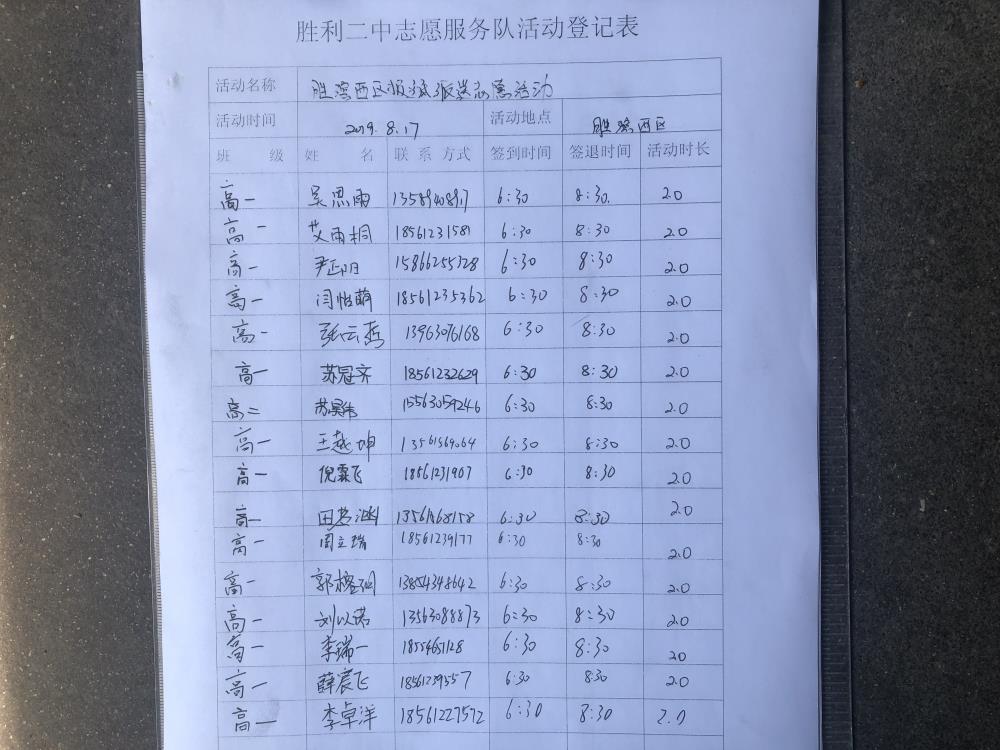 胜利二中志愿服务队活动登记表
活动名称 胜滨西区 志愿活动
活动时间 2019.8.17 活动地点 胜滨西区
班 级 姓 名 联 系 方式 签到时间 签退时间 活动时长
高一 吴思雨 1358940891 6:30 8:30. 2.0
高一 艾雨桐 18561231581 6:30 8:30 2.0
高一 尹正阳 15866255328 6:30 8:30 2.0
高一 闫怡萌 18561235362 6:30 8:30 2.0
高一 张云秀 13963076168 6:30 8:30 2.0
高一 苏冠齐 18561232629 6:30 8:30 2.0
高二 苏昊伟 15563059246 6:30 8:30 2.0
高一 王越坤 13561569064 6:30 8:30 2.0
高一 倪霖飞 18561231907 6:30 8:30 2.0
高一 田茗涵 13561168158 6:30 8:30 2.0
高一 周立瑞 18561239177 6:30 8:30 2.0
高一 郭榕 13854348642 6:30 8:30 2.0
高一 刘以诺 13563088873 6:30 8:30 2.0
高一 李瑞一 18554651128 6:30 8:30 20
高一 薛宸飞 18561239557 6:30 8:30 2.0
高一 李卓洋 18561227572 6:30 8:30 2.0